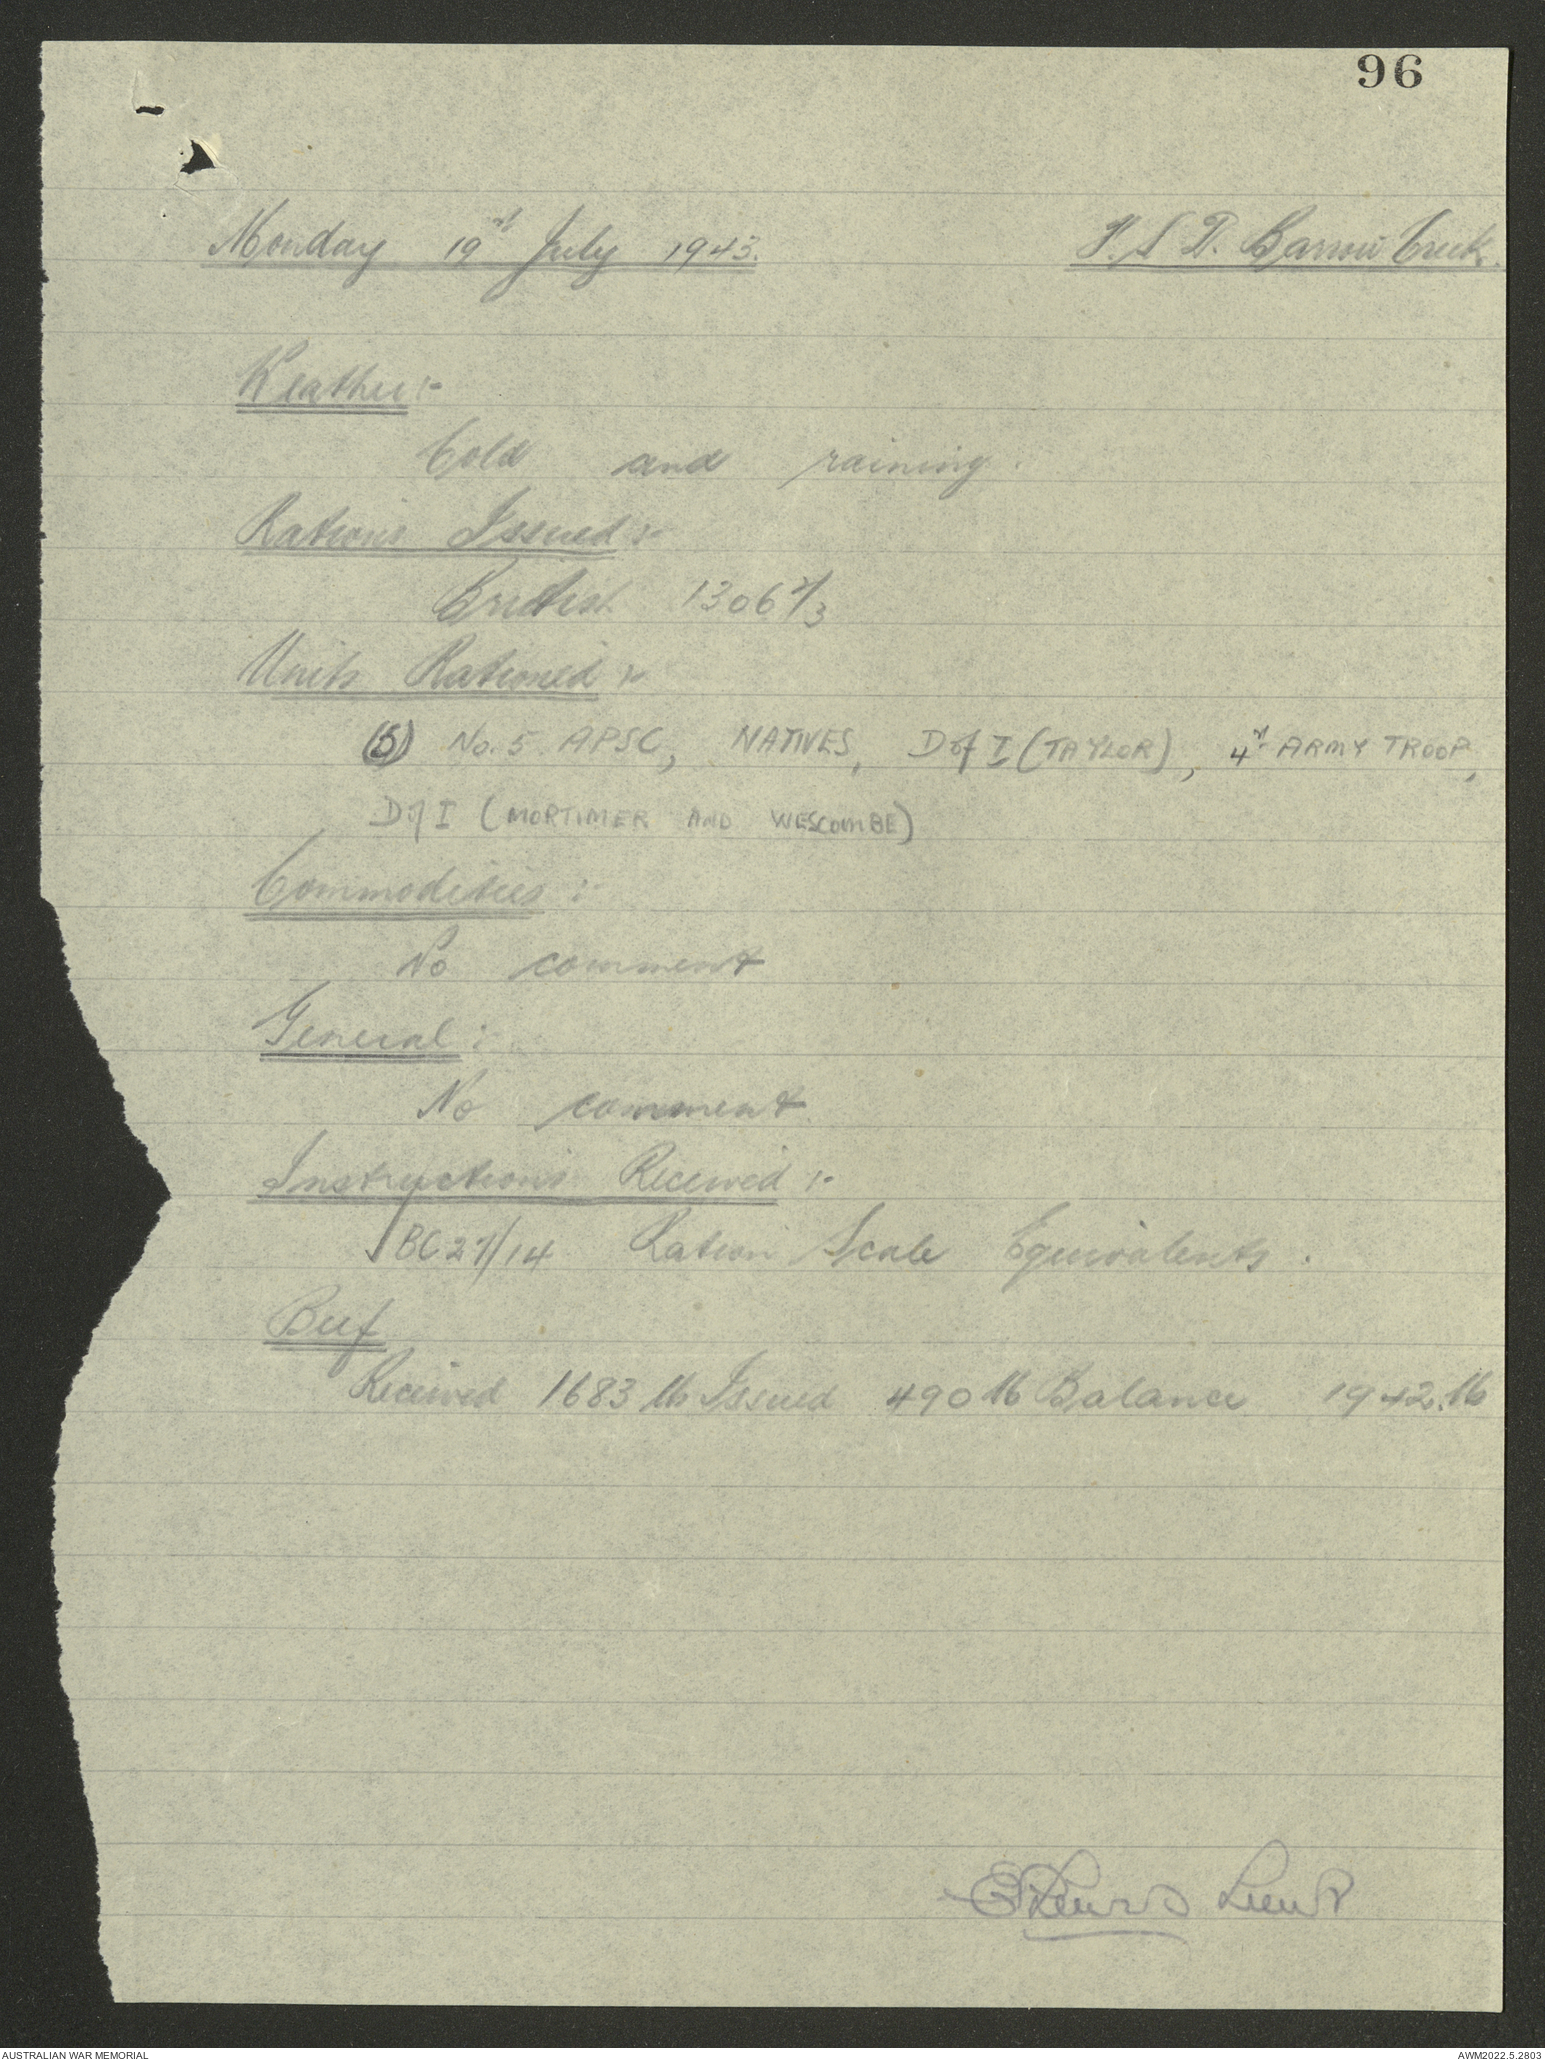 96
Monday 19th July 1943. F.S.D. Barrow Creek.
Weather:-
Cold and raining.
Rations Issued:-
British 1306 2/3
Units Rationed:-
(5) No. 5 APSC, NATIVES, D of I (TAYLOR), 4th ARMY TROOP,
D of I (MORTIMER AND WESCOMBE)
Commodities :-
No comment
General :-
No comment
Instructions Received :-
BC27/14 Ration Scale Equivalents.
Beef
Received 1683 lb Issued 490 lb Balance 1942. lb
Lieut
AUSTRALIAN WAR MEMORIAL AWM2022.5.2803